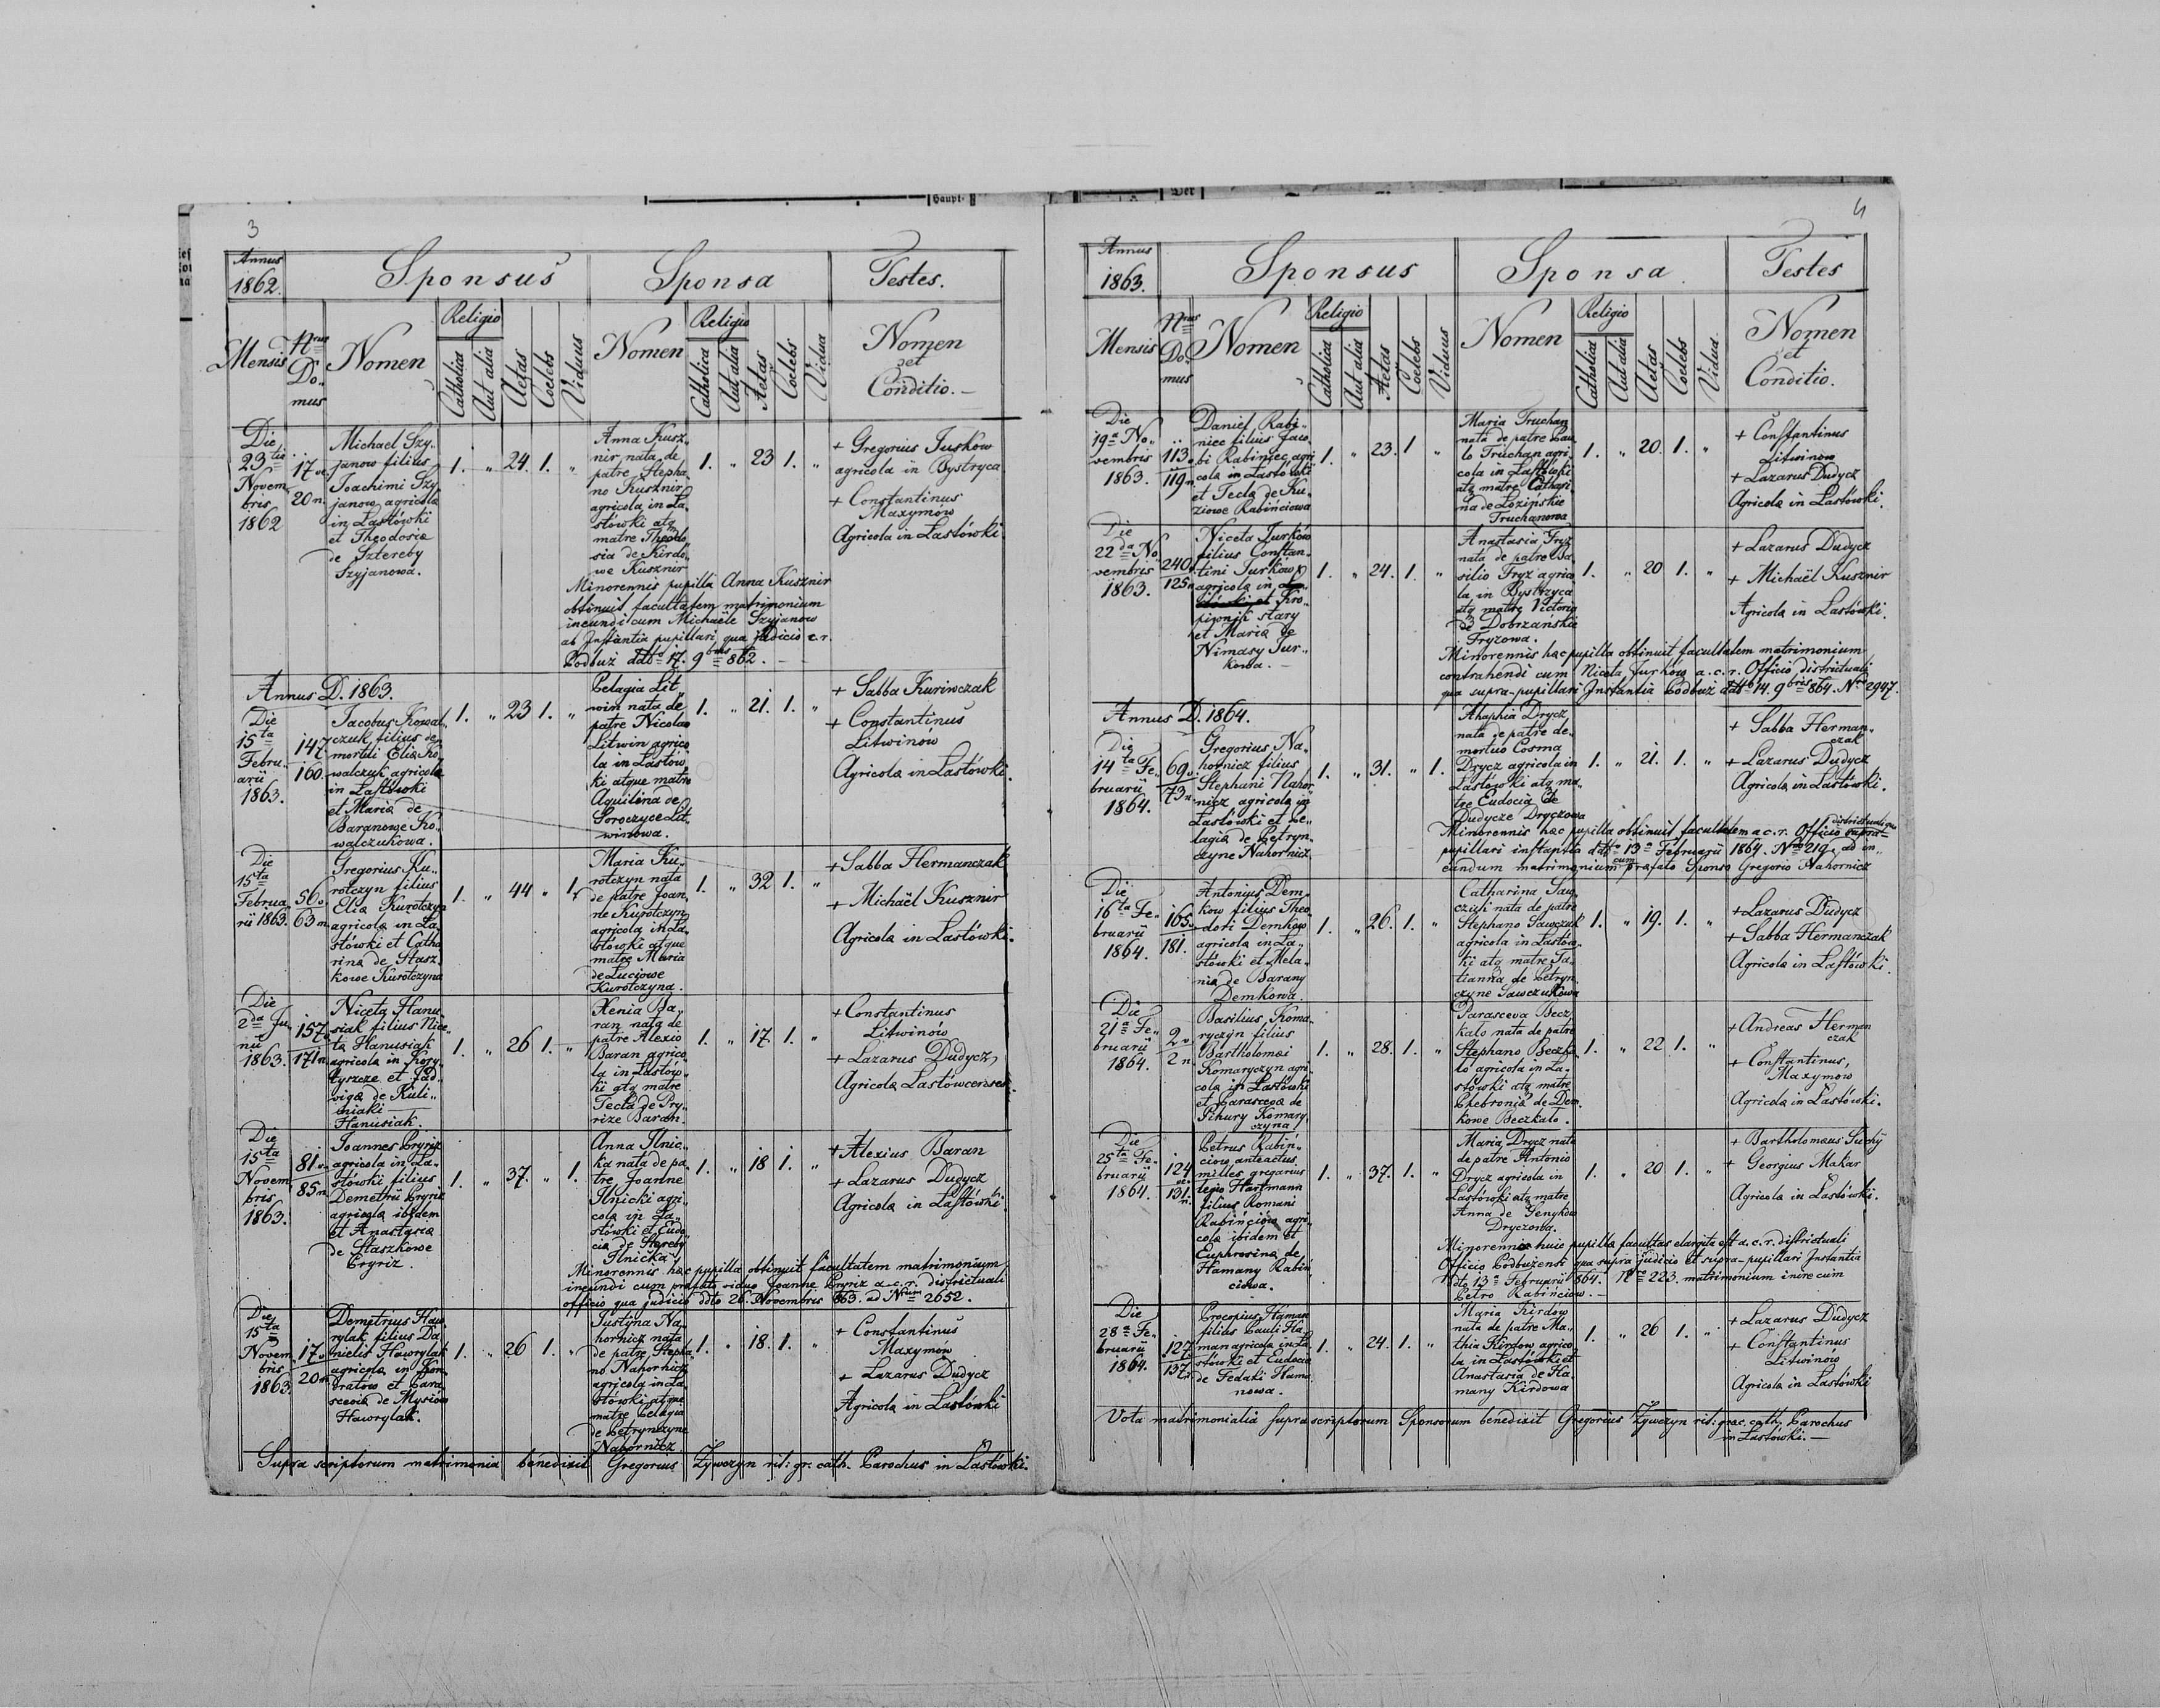 3
Annus
1862.
Sponsus
Sponsa
Testes.
Mensis
Nrus
Do-
mus
Nomen
Religio
Catholica
Aut alia
Aetas
Coelebs
Viduus
Nomen
Religio
Catholica
Aut alia
Aetas
Coelebs
Vidua
Nomen
et
Conditio.
Die
23tia
Novem
bris
1862
17 v.
20 n.
Michael Szy-
janow filius
Joachimi Szy
janow agricola
in Lastówki
et Theodosia
de Sztereby
Szyjanowa.
1. " 24. 1. "
Anna Kusz-
nir nata de
patre Stepha
no Kusznir
agricola in La-
stówki atq
matre Theodo
sia de Kirdo
we Kusznir
1. " 23 1. "
+ Gregorius Jurkow
agricola in Bystryca
+ Constantinus
Maxymów
Agricola in Lastówki.
Minorennis pupilla Anna Kusznir
obtinuit facultatem matrimonium
ineundi cum Michaële Szyjanow
ab Instantia pupillari qua judicio c.r.
Podbuż ddto 17. 9bris 862.
Annus D. 1863.
Die
15ta
Febru-
arii
1863.
147.
160.
Jacobus Kowal-
czuk filius de-
mortui Elia Ko-
walczuk agricola
in Lastówki
et Maria de
Baranowe Ko-
walczukowa.
1. " 23 1. "
Pelagia Lit-
win nata de
patre Nicolao
Litwin agrico
la in Lastów
ki atque matre
Aquilina de
Soroczyce Lit-
winowa.
1. " 21. 1. "
+ Sabba Kuriwczak
+ Constantinus
Litwinów
Agricola in Lastówki.
Die
15ta
Februa
rii 1863.
56 v.
63 n.
Gregorius Ku-
rotczyn filius
Elia Kurotczyn
agricola in La-
stówki et Catha
rina de Stasz-
kowe Kurotczyna
1. " 44 " 1.
Maria Ku-
rotczyn nata
de patre Joan-
ne Kurotczyn
agricola in La-
stówki atque
matre Maria
de Luciowe
Kurotczyna.
1. " 32 1. "
+ Sabba Hermanczak
+ Michaël Kusznir
Agricola in Lastówki.
Die
2da Ju-
nii
1863.
157.
171 n.
Niceta Hanu-
siak filius Nice-
ta Hanusiak
agricola in Kory-
tyszcze et Jad-
viga de Kuli-
niaki
Hanusiak.
1. " 26 1. "
Xenia Ba-
ran nata de
patre Alexio
Baran agrico
la in Lastow-
ki atq matre
Tecla de Pry-
rize Baran.
1. " 17. 1. "
+ Constantinus
Litwinów
+ Lazarus Dudycz
Agricola Lastówcenses
Die
15ta
Novem
bris
1863.
81 v.
85 n.
Joannes Pryriz
agricola in La-
stówki filius
Demetrii Pryriz
agricola ibidem
et Anastasia
de Staszkowe
Pryriz.
1. " 37. " 1.
Anna Ilnic-
ka nata de pa-
tre Joanne
Ilnicki agri-
cola in La-
stówki et Eudo
cia de Stereby
Ilnicka.
1. " 18 1. "
+ Alexius Baran
+ Lazarus Dudycz
Agricola in Lastówki
Minorennis hac pupilla obtinuit facultatem matrimonium
ineundi cum præfato viduo Joanne Pryriz a c.r. districtuali
officio qua judicio ddto 26. Novembris 863. ad Nrum 2652.
Die
15ta
Novem
bris
1863.
17 v.
20 n.
Demetrius Haw-
rylak filius Da
nielis Hawrylak
agricola in Kon
dratów et Para
scevia de Mysiow
Hawrylak.
1. " 26 1. "
Justyna Na-
hornicz nata
de patre Stepha-
no Nahornicz
agricola in La-
stówki atque
matre Pelagia
de Petrynczyne
Nahornicz.
1. " 18. 1. "
+ Constantinus
Maxymow
+ Lazarus Dudycz
Agricola in Lastówki
Supra scriptorum matrimonia benedixit Gregorius Żywczyn rit: gr: cath. Parochus in Lastówki.
4
Annus
1863.
Sponsus
Sponsa
Testes
Mensis
Nrus
Do-
mus
Nomen
Religio
Catholica
Aut alia
Aetas
Coelebs
Viduus
Nomen
Religio
Catholica
Aut alia
Aetas
Coelebs
Vidua
Nomen
et
Conditio.
Die
19a No-
vembris
1863.
113.
119 n.
Daniel Rabi-
niec filius Jaco-
bi Rabiniec agri
cola in Lastówki
et Tecla de Ku-
ziowe Rabińciowa
1. " 23. 1 "
Maria Truchan
nata de patre Pau
lo Truchan agri-
cola in Lastówki
atq matre Cathari
na de Łozińskie
Truchanowa
1. " 20. 1. "
+ Constantinus
Litwinow
+ Lazarus Dudycz
Agricola in Lastówki.
Die
22da No
vembris
1863.
240.
125 n.
Niceta Jurków
filius Constan-
tini Jurkow
agricola in
Kro-
piwnik stary
et Maria de
Nimasy Jur-
kowa.
1. " 24. 1. "
Anastasia Fryz
nata de patre Ba
silio Fryz agrico
la in Bystryca
atq matre Victoria
de Dobrzańskie
Fryzowa.
1. " 20 1. "
+ Lazarus Dudycz
+ Michaël Kusznir
Agricola in Lastówki.
Minorennis hac pupilla obtinuit facultatem matrimonium
contrahendi cum Niceta Jurków a.c.r. Officio districtuali
qua supra-pupillari Instantia Podbuż ddto 14. 9bris 864. Nro 2947.
Annus D. 1864.
Die
14ta Fe-
bruarii
1864.
69 v.
73 n.
Gregorius Na-
hornicz filius
Stephani Nahor
nicz agricola in
Lastówki et Pe-
lagia de Petryn-
czyne Nahornicz
1. " 31. " 1.
Ahaphia Drycz
nata de patre de-
mortuo Cosma
Drycz agricola in
Lastówki atq ma-
tre Eudocia de
Dudycze Dryczowa
1. " 21. 1. "
+ Sabba Herman-
czak
+ Lazarus Dudycz
Agricola in Lastówki.
Minorennis hac pupilla obtinuit facultatem a c.r. Officio districtuali qua supra-
pupillari instantia ddto 13a Februarii 1864. Nro 219. ad in-
eundum matrimonium cum præfato Sponso Gregorio Nahornicz
Die
16ta Fe-
bruarii
1864.
165.
181.
Antonius Dem-
kow filius Theo-
dori Demkow
agricola in La-
stówki et Mela-
nia de Barany
Demkowa.
1. " 26. 1. "
Catharina Saw
czuk nata de patre
Stephano Sawczuk
agricola in Lastów-
ki atq matre Ta-
tianna de Petryn-
czyne Sawczukowa
1. " 19. 1. "
+ Lazarus Dudycz
+ Sabba Hermanczak
Agricola in Lastówki.
Die
21a Fe-
bruarii
1864.
2 v.
2 n.
Basilius Koma-
ryczyn filius
Bartholomæi
Komaryczyn agri
cola in Lastówki
et Parasceva de
Pihury Komary
czyna
1. " 28. 1. "
Parasceva Becz
kalo nata de patre
Stephano Beczka
lo agricola in La-
stówki atq matre
Chebronia de Dem
kowe Beczkalo.
1. " 22 1. "
+ Andreas Herman
czak
+ Constantinus
Maxymow
Agricola in Lastówki.
Die
25ta Fe-
bruarii
1864.
124
131.
Petrus Rabiń-
ciow anteactus
milles gregarius
legio Hartmann
filius Romani
Rabińciów agri-
cola ibidem et
Euphrosina de
Hamany Rabiń
ciowa.
1. " 37. 1. "
Maria Drycz nata
de patre Antonio
Drycz agricola in
Lastówki atq matre
Anna de Genyków
Dryczowa.
1. " 20 1. "
+ Bartholomæus Suchÿ
+ Georgius Makar
Agricola in Lastówki.
Minorennis huic pupilla facultas elargita est a.c.r. districtuali
Officio Podbużensi qua supra judicio et supra-pupillari Instantia
ddto 13a Februarii 864. Nro 223. matrimonium inire cum
Petro Rabińciow.
Die
28a Fe-
bruarii
1864.
127
137.
Procopius Haman
filius Pauli Ha
man agricola in La
stówki et Eudocia
de Fedaki Hama
nowa.
1. " 24. 1. "
Maria Kirdow
nata de patre Ma-
thia Kirdow agrico
la in Lastówki et
Anastasia de Ha-
many Kirdowa
1. " 26 1. "
+ Lazarus Dudycz
+ Constantinus
Litwinow
Agricola in Lastówki
Vota matrimonialia suprascriptorum Sponsorum benedixit Gregorius Żywczyn rit: græc. cath. Parochus
in Lastówki.